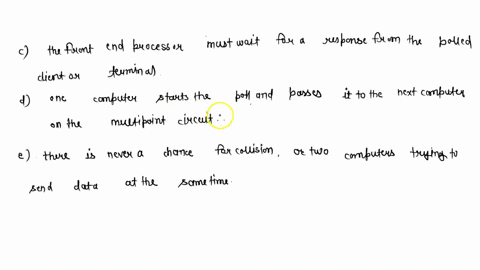 c) the front end processor must wait for a response from the polled
client or terminal.
d) one computer starts the poll and passes it to the next computer
on the multipoint circuit ∴
e) there is never a chance for collision, or two computers trying to
send data at the sametime.